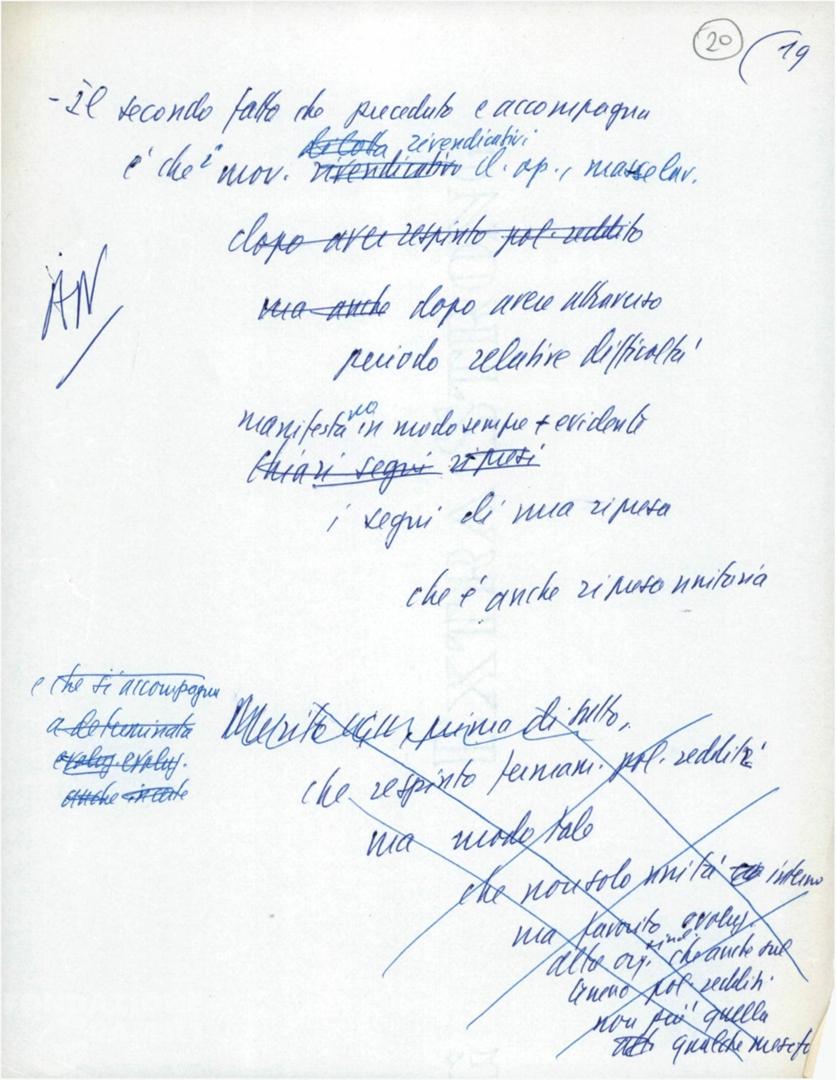 20 (19
- Il secondo fatto che preceduto e accompagna
di lotta rivendicativi
è che i mov. rivendicativo cl. op., masse lav.
dopo aver respinto pol. reddito
AN
ma anche dopo avere attraverso
periodo relative difficoltà
manifestano in modo sempre + evidente
chiari segni ripresi
i segni di una ripresa
che è anche ripresa unitaria
e che si accompagna
a determinata
evoluz. evoluz.
anche in
Merito prima di tutto,
che respinto fermam. pol. redditi
ma modo tale
che non solo unità interno
ma favorito evoluz.
altre org. sind. che anche sul
terreno pol. redditi
non più quella
qualche mese fa